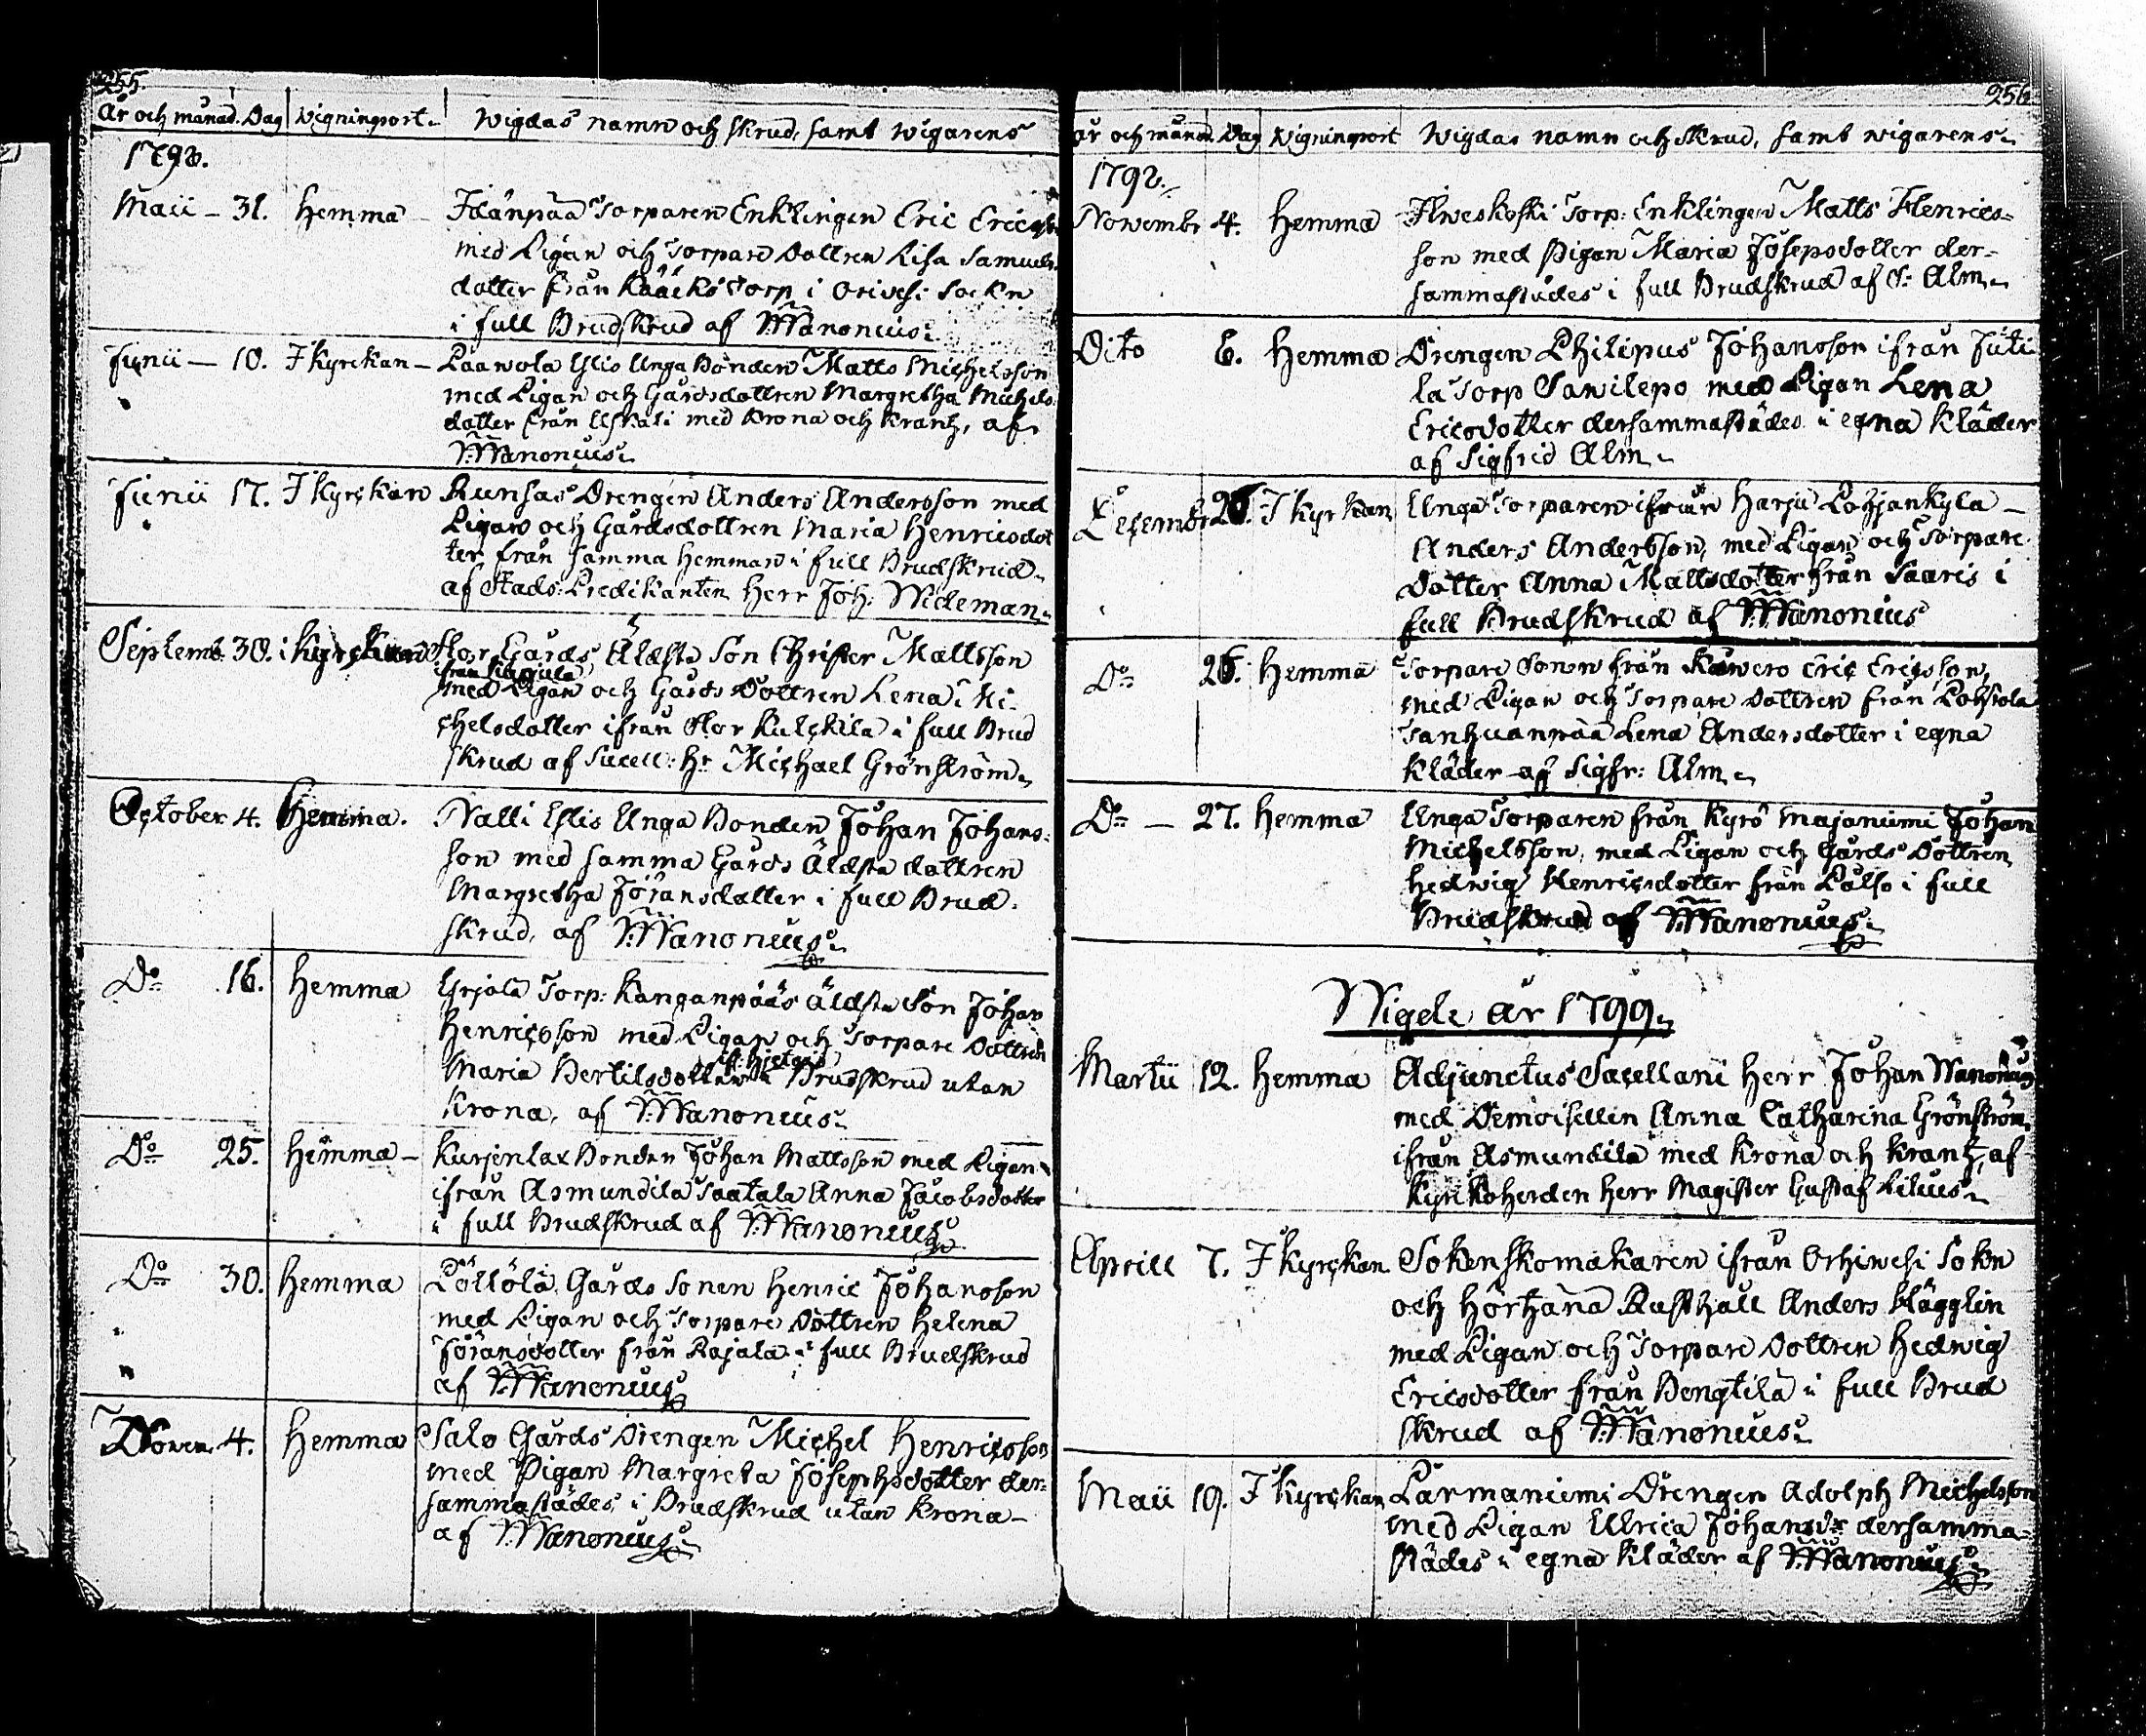 255.
År och månad. Dag Wigningsort. Wigdas namn och skrud, samt wigarens
1798.
Maii – 31. Hemma – Idänpää Torparen Enklingen Eric Ericsson
med Pigan och Torpare Dottren Lisa Samuels
dotter från Kääcks Torp i Orivesi Sockn
i full Brudskrud af Wanonius.
Junii – 10. I Kyrckan – Läawola Eslis Unga Bonden Matts Michelsson
med Pigan och Gårdsdottren Margretha Michels
dotter från Uskali med Krona och Krantz, af
Wanonius.
Junii 17. I Kyrckan Runsas Drengen Anders Andersson med
Pigan och Gårdsdottren Maria Henricsdot
ter från samma Hemman i full Brudskrud
af Stads-Predikanten Herr Joh: Wideman.
Septemb. 30. i Kyrckan Stor Gårds Äldsta Son Christer Mattsson
ifrån
med Pigan och Gårds Dottren Lena Mi-
chelsdotter ifrån Stor Kulckila i full Brud
skrud af Sacell: Hr Michael Grönström.
October 4. Hemma. Nalli Eslis Unga Bonden Johan Johans-
son med samma Gårds Äldsta dottren
Margretha Jöransdotter i full Brud-
skrud, af Wanonius.
Do 16. Hemma Yrjölä Torp: Kanganpääs Äldsta Son Johan
Henricsson med Pigan och Torpare Dottren
Maria Bertilsdotter i Brudskrud utan
Krona, af Wanonius.
Do 25. Hemma – Kurjenlax Bonden Johan Mattsson med Pigan
ifrån Asmundila Saatala Anna Jacobsdotter
i full Brudskrud af Wanonius
Do 30. Hemma Pöllölä Gårds Sonen Henric Johansson
med Pigan och Torpare Dottren Helena
Jöransdotter från Rajala i full Brudskrud
af Wanonius
Novem. 4. Hemma Salo Gårds Drengen Michel Henricsson
med Pigan Margreta Josephsdotter der-
sammastädes, i Brudskrud utan Krona –
af Wanonius.
256.
År och månad. Dag Wigningsort Wigdas namn och Skrud, samt wigarens
1798.
Novembr 4. Hemma Ilweskoski Torp: Enklingen Matts Henrics-
son med Pigan Maria Josepsdotter der-
sammastädes i full Brudskrud af S: Alm.
Dito 6. Hemma Drengen Philipus Johansson ifrån Juti
la Torp Sawilepo med Pigan Lena
Ericsdotter dersammastädes i egna Kläder
af Sigfrid Alm.
Decembr 26. I Kyrckan Unga Torparen ifrån Harju Pohjankylä –
Anders Andersson, med Pigan och Torpare
Dotter Anna Mattsdotter från Saaris i
full Brudskrud af Wanonius
Do 26. Hemma Torpare Sonen från Kawero Eric Ericsson,
med Pigan och Torpare Dottren från Pohjola
Tanhuanpää Lena Andersdotter i egna
Kläder af Sigfr: Alm.
Do – 27. Hemma Unga Torparen från Kyrö Majaniemi Johan
Michelsson, med Pigan och Gårds Dottren
Hedwig Henricsdotter från Palso i full
Brudskrud af Wanonius.
Wigde år 1799.
Martii 12. Hemma Adjunctus Sacellani Herr Johan Wanonius
med Demoisellen Anna Catharina Grönström
ifrån Asmundila med Krona och Krantz, af
Kyrckoherden Herr Magister Gustaf Lilius.
Aprill 7. I Kyrckan Sokenskomakaren ifrån Orhiwesi Sokn
och Hörhänä Rusthåll Anders Hägglin
med Pigan och Torpare Dottren Hedwig
Ericsdotter från Bengtilä i full Brud
skrud af Wanonius.
Maii 19. I Kyrckan Lärmaniemi Drengen Adolph Michelsson
med Pigan Ulrica Johansdr dersamma-
städes i egna Kläder af Wanonius.